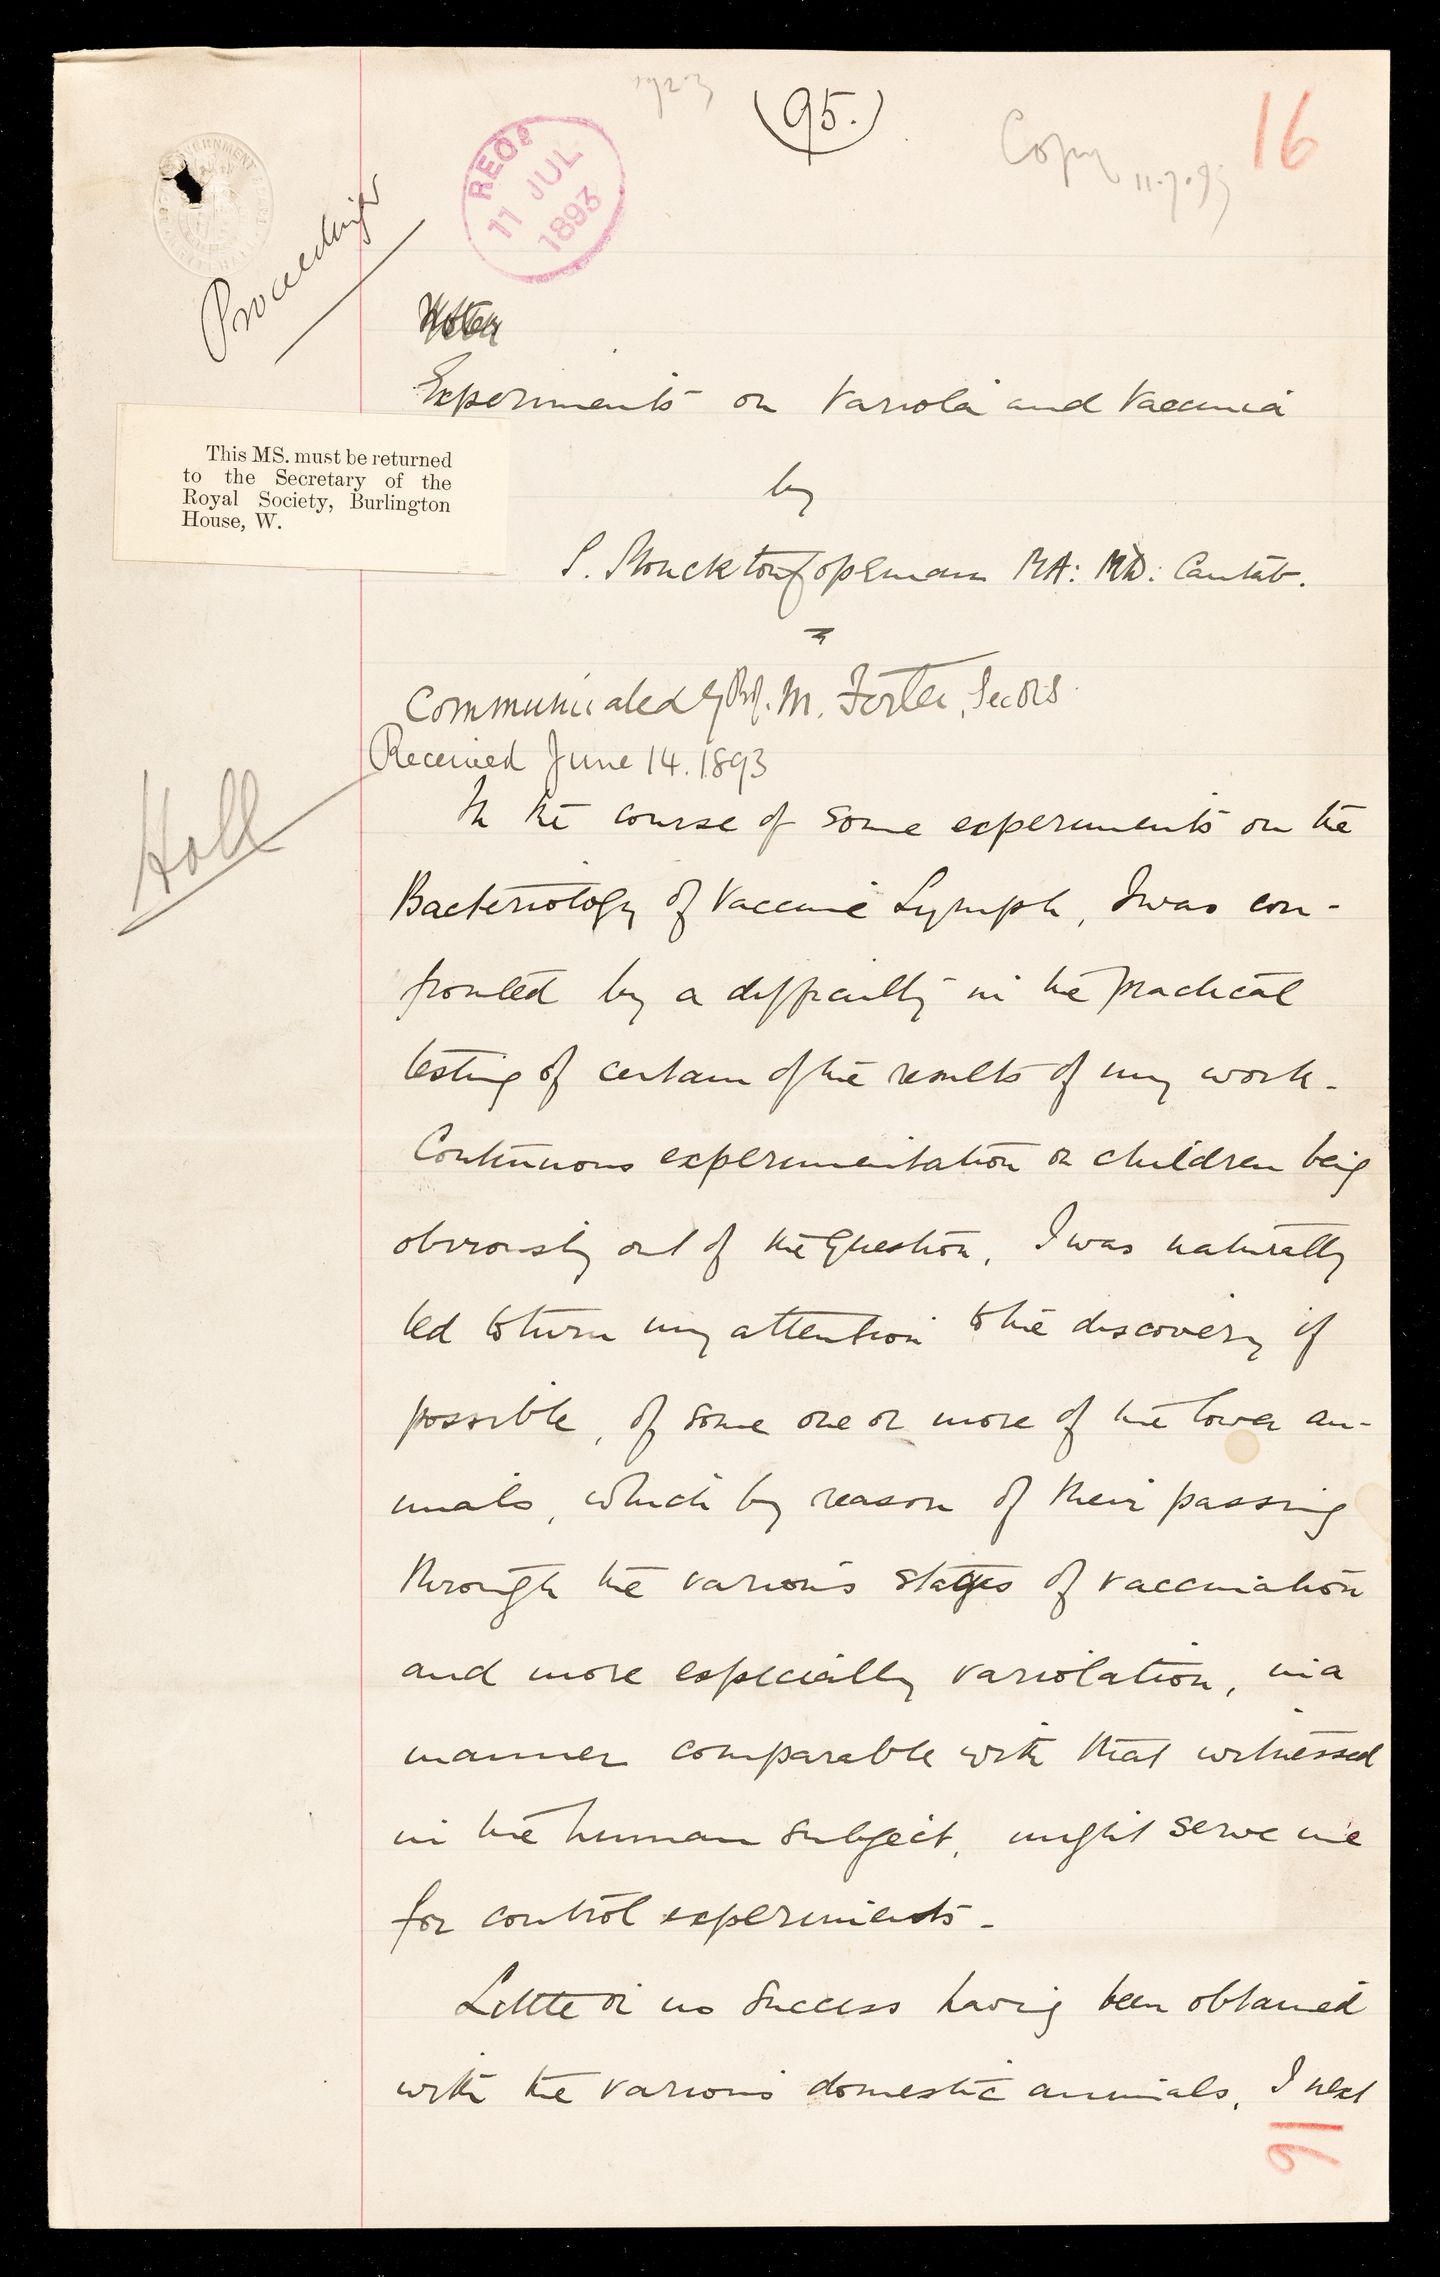 1923
(95.)
Copy
11.7.93
16
RECD
11 JUL
1893
Proceedings
Notes
Experiments on Variola and Vaccinia
This MS. must be returned
to the Secretary of the
Royal Society, Burlington
House, W.
by
S. Monckton Copeman MA: MD: Cantab.
Communicated by Prof. M. Foster, Sec RS
Received June 14. 1893
Holl
In the course of some experiments on the
Bacteriology of Vaccine Lymph, I was con-
fronted by a difficulty in the practical
testing of certain of the results of my work.
Continuous experimentation on children being
obviously out of the question, I was naturally
led to turn my attention to the discovery if
possible, of some one or more of the lower an-
imals, which by reason of their passing
through the various stages of vaccination
and more especially variolation, in a
manner comparable with that witnessed
in the human subject, might serve me
for control experiments.
Little or no success having been obtained
with the various domestic animals, I next
16